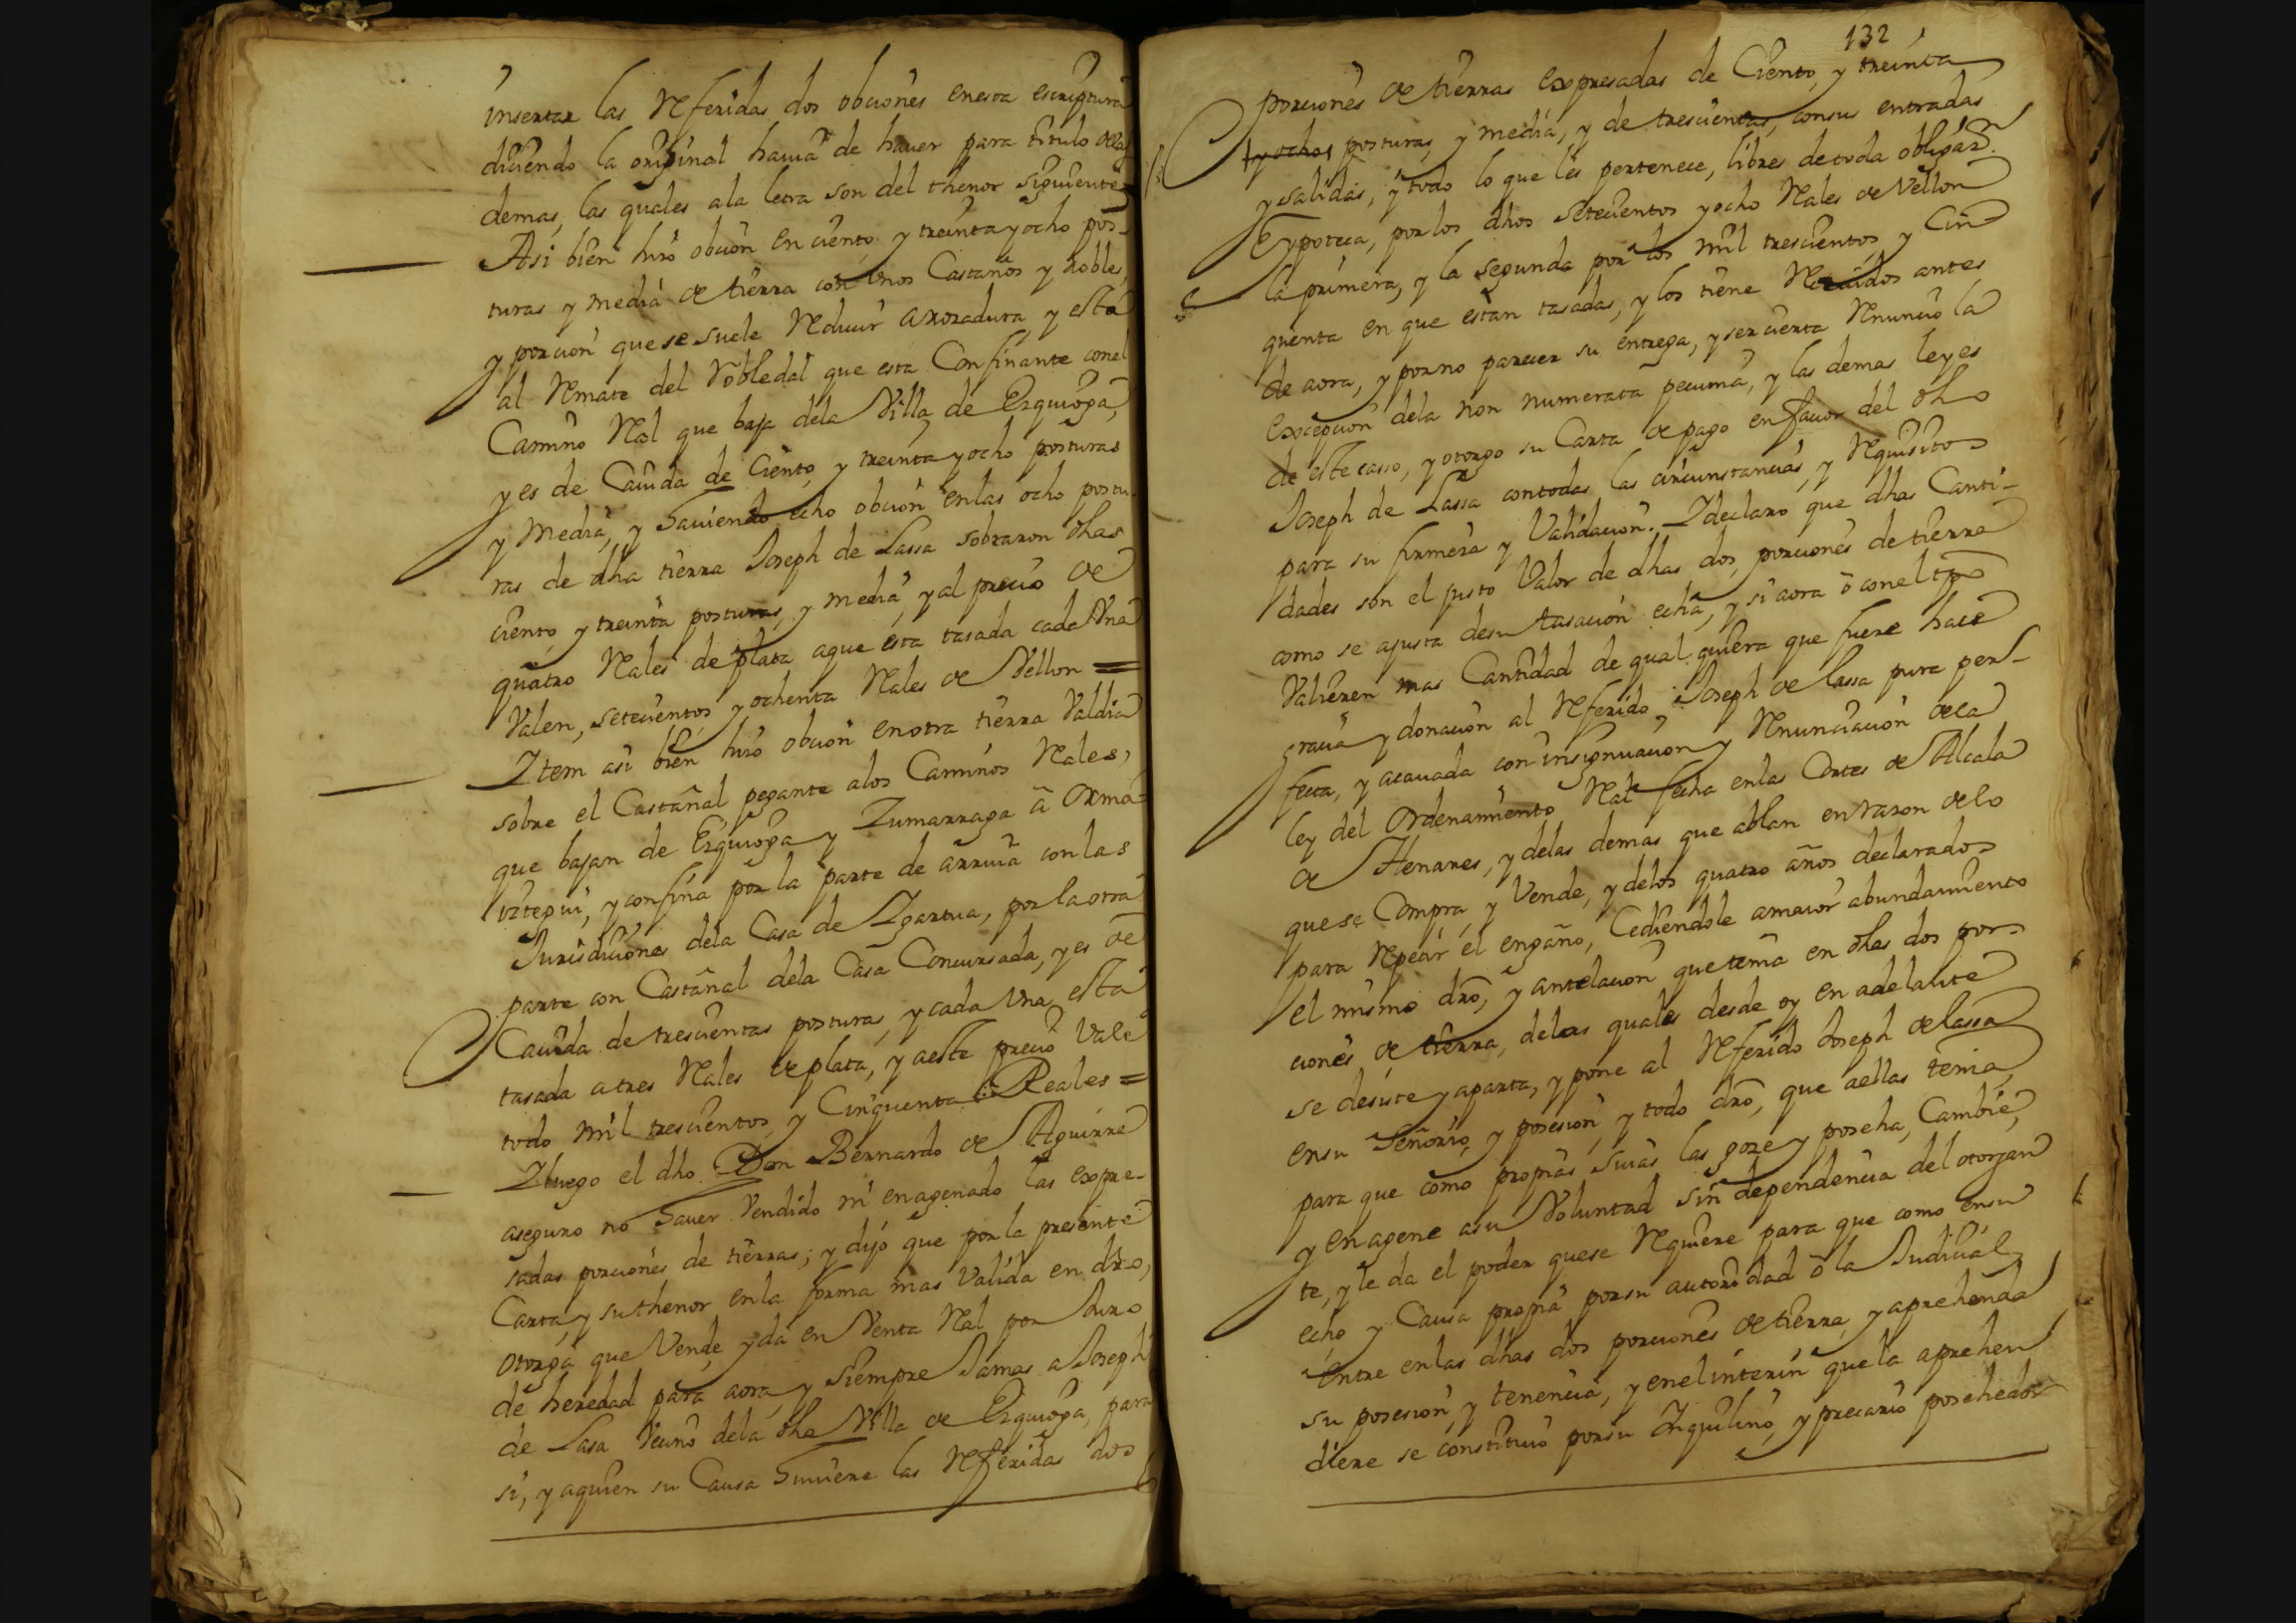 insertar las Referidas dos obciones enesta escriptura
diciendo la original havia de haver para titulo delas
demas, las quales ala letra son del thenor siguiente
Asi bien hizo obcion en ciento, y treinta y ocho pos-
turas y media de tierra con unos Castaños y Robles,
y porcion que se suele Reducir a rozadura, y esta
al Remate del Robledal que esta Confinante conel
Camino Ral que baja dela Villa de Ezquioga,
y es de Cavida de Ciento, y treinta y ocho posturas
y Media, y haviendo echo obcion enlas ocho postu-
ras de dha tierra Joseph de Lassa sobraron dhas
ciento, y treinta posturas, y media, y al precio de
quatro Rales de plata aque esta tasada cada Una
Valen, setecientos, y ochenta Rales de Vellon =
Item asi bien hizo obcion en otra tierra Valdia
sobre el Castañal pegante alos Caminos Rales,
que bajan de Ezquioga y Zumarraga à Orma-
iztegui, y confina por la parte de arriva con las
Jurisdiciones dela Casa de Igartua, por la otra
parte con Castañal dela Casa Concursada, y es de
Cavida de trescientas posturas, y cada Una esta
tasada a tres Rales de plata, y aeste precio Vale
todo mil trescientos, y Cinquenta Reales =
I luego el dho Don Bernardo de Aguirre
aseguro no haver Vendido ni enagenado las expre-
sadas porciones de tierras; y dijo que por la presente
Carta, y su thenor enla forma mas Valida en dro,
otorga que Vende, y da en Venta Ral por Juro
de heredad para aora, y siempre Jamas a Joseph
de Lasa Vecino dela dha Villa de Ezquioga, para
si, y aquien su Causa huviere las Referidas dos
132
porciones de tierras expresadas de Ciento, y treinta
y ochos posturas, y media, y de trescientas, consus entradas
y salidas, y todo lo que les pertenece, libres de toda obligazn.
E ypoteca, por los dhos setecientos y ocho Rales de Vellon
la primera, y la segunda por los mil trescientos, y Cin
quenta en que estan tasadas, y los tiene Recividos antes
de aora, y por no parecer su entrega, y ser cierta Renuncio la
excepcion dela non numerata pecunia, y las demas leyes
de este casso, y otorgo su Carta de pago en favor del dho
Joseph de Lassa contodas las circunstancias, y Requisitos
para su firmeza y Validacion. I declaro que dhas Canti-
dades son el justo Valor de dhas dos, porciones de tierra
como se ajusta desu tasacion echa, y si aora ò conel tpo
Valieren mas Cantidad de qual quiera que fuere hace
gracia y donacion al Referido Joseph de Lassa pura per-
fecta, y acavada con insignuacion y Renunciacion dela
ley del Ordenamiento Ral fecha enlas Cortes de Alcala
de Henares, y delas demas que ablan en razon delo
que se Compra, y Vende, y delos quatro años declarados
para Repetir el engaño, Cediendole amaior abundamiento
el mismo dro, y antelacion que tenia en dhas dos por-
ciones de tierra, delas quales desde oy en adelante
se desiste y aparta, y pone al Referido Joseph de Lassa
ensu Señorio, y posesion, y todo dro, que aellas tenia,
para que como propias suias las goze y poseha, Cambie,
y enagene asu Voluntad sin dependencia del otorgan
te, y le da el poder que se Requiere para que como ensu
echo, y Causa propia por su autoridad ò la Judicial
entre enlas dhas dos porciones de tierra, y aprehenda
su posesion, y tenencia, y enel interin que la aprehen
diere se constituio por su Inquilino, y precario posehedor